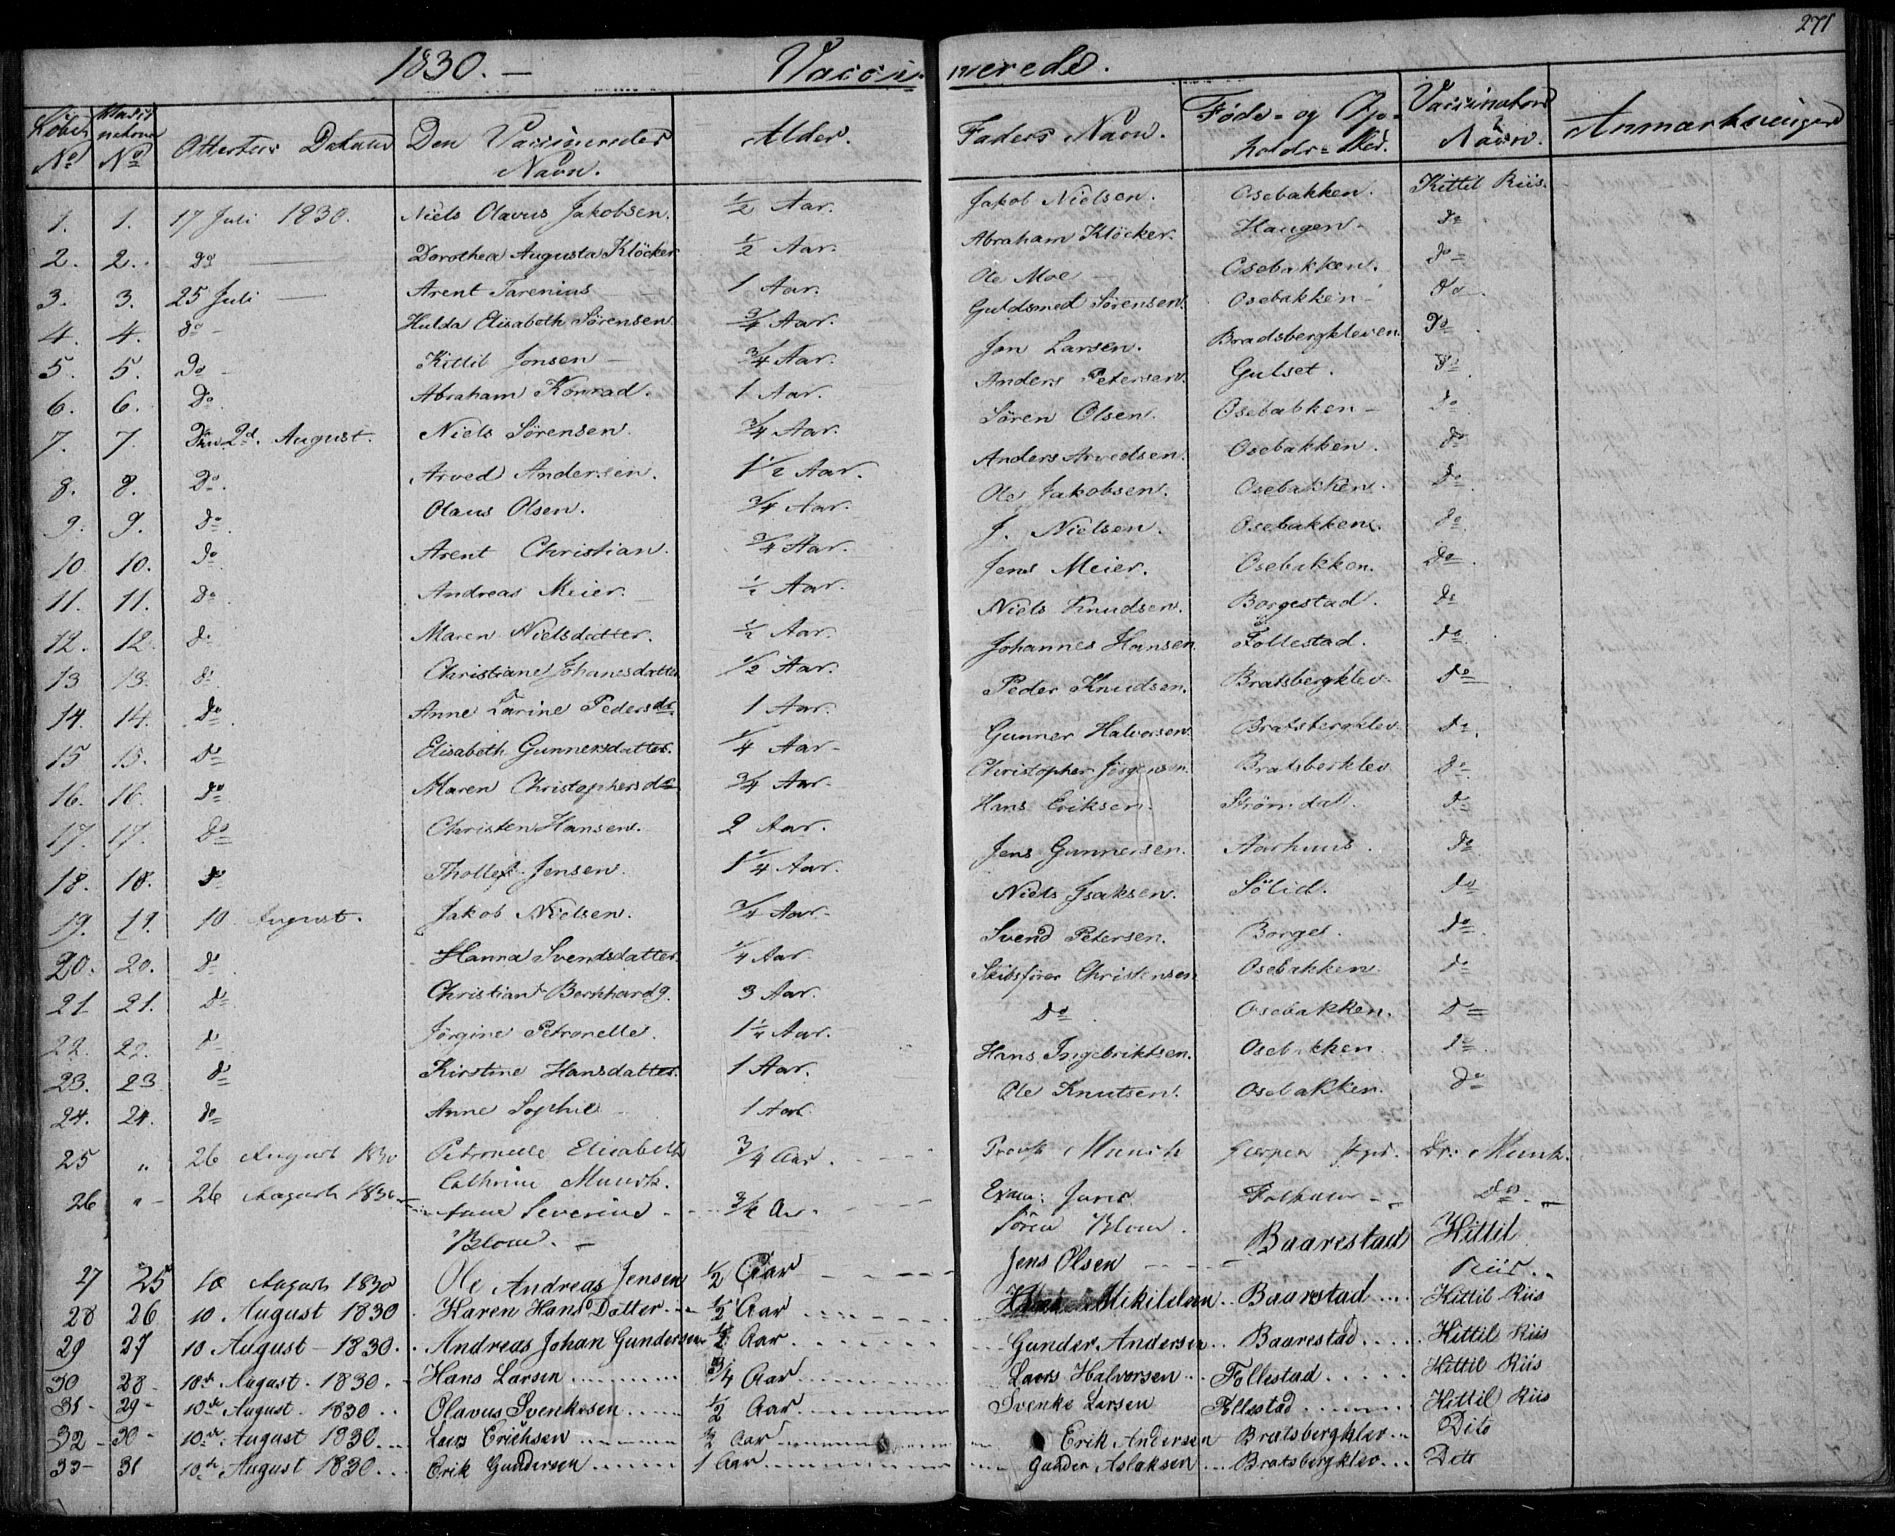 271
1830. — Vaccinerede.
Löbe No | No | Attestens Datum | Den Vaccineredes Navn. | Alder. | Faders Navn. | Føde- og Opholds-Sted. | Vaccinators Navn. | Anmærkninger
1. 1. 17 Juli 1830. Niels Olavus Jakobsen. ½ Aar. Jakob Nielsen. Osebakken. Kittil Riis.
2. 2. do Dorothea Augusta Klöcker ½ Aar. Abraham Klöcker. Haugen do
3. 3. 25 Juli — Arent Tarenius 1 Aar. Ole Moe Osebakken. do
4. 4. do Hulda Elisabeth Sörensen ¾ Aar. Guldsmed Sörensen. Osebakken do
5. 5. Do Kittil Jonsen ¾ Aar. Jon Larsen. Bradsbergkleven Do
6. 6. Do Abraham Konrad. 1 Aar. Anders Petersen. Gulset. Do
7. 7. Den 2d. August. Niels Sörensen. ¾ Aar. Sören Olsen. Osebakken do
8. 8. Do. Arved Andersen. 1½ Aar. Anders Arvedsen. Osebakken. do
9. 9. do Olaus Olsen. ¾ Aar. Ole Jakobsen. Osebakken. Do
10. 10. do Arent Christian. ¾ Aar. J. Nielsen. Osebakken. do
11. 11. Do Andreas Meier. ½ Aar. Jens Meier. Osebakken. Do
12. 12. do Maren Nielsdatter. ½ Aar. Niels Knudsen. Borgestad. do
13 13. do Christiane Johanesdatter ½ Aar. Johannes Hansen Follestad. do
14. 14. Do Anne Karine Pedersdr 1 Aar. Peder Knudsen. Bratsbergklev Do
15 15. Do Elisabeth Gunnersdatter. ¼ Aar Gunner Halvorsen Bratsbergklev Do.
16. 16. Do Maren Christophersdr ¾ Aar. Christopher Jörgensen. Bratsberklev do
17. 17. Do Christen Hansen. 2 Aar. Hans Eriksen. Strömdal. do
18. 18. do Thollef Jensen. 1¼ Aar. Jens Gunnersen. Aarhuus. do
19. 19. 10 August. Jakob Nielsen. ¾ Aar. Niels Isaksen. Sölid. do
20. 20. do Hanna Svendsdatter. ¼ Aar Svend Petersen. Borges. do
21 21. do Christiane Bernhard 3 Aar. Skibsförer Christensen Osebakken do
22. 22. do Jörgine Petronelle. 1¼ Aar. Do Osebakken. do
23. 23. do Kirstine Hansdatter. 1 Aar. Hans Ingebriktsen. Osebakken. do
24. 24. do Anne Sophie 1 Aar. Ole Knutsen. Osebakken. do
25 „ 26 August 1830 Petronelle Elisabeth Cathrine Munch. ¾ Aar. Provst Munch Gjerpen Pgrd. Dr: Munk.
26 „ 26 August 1830 Anne Severine Blom. ¾ Aar. Exam: Juris Sören Blom. Do
27 25 10 August 1830 Ole Andreas Jensen ½ Aar Jens Olsen Baarestad Kittil Riis.
28 26 10. August 1830 Karen Hans Datter ½ Aar Mikilelsen Baarestad Kittil Riis
29 27 10 August 1830. Andreas Johan Gundersen ½ Aar Gunder Andersen Baarestad Kittil Riis
30 28 10de August. 1830. Hans Larsen ¾ Aar Lars Halvorsen Follestad Kittil Riis
31 29 10de August. 1830 Olavus Svenkesen ½ Aar Svenke Larsen Follestad Kittil Riis
32 30 10de August 1830. Lars Erichsen ½ Aar Erik Andersen Bratsbergklev Dito
33 31 10de August 1830. Erik Gundersen 1 Aar Gunder Aslaksen Bratsbergklev Dito